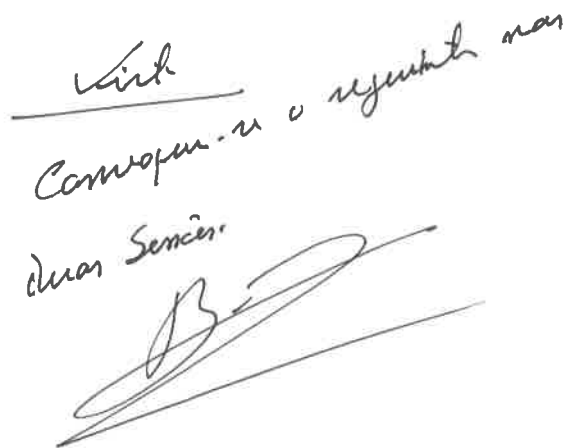 Visto
Convoque-se o requerente nas
duas Sessões.